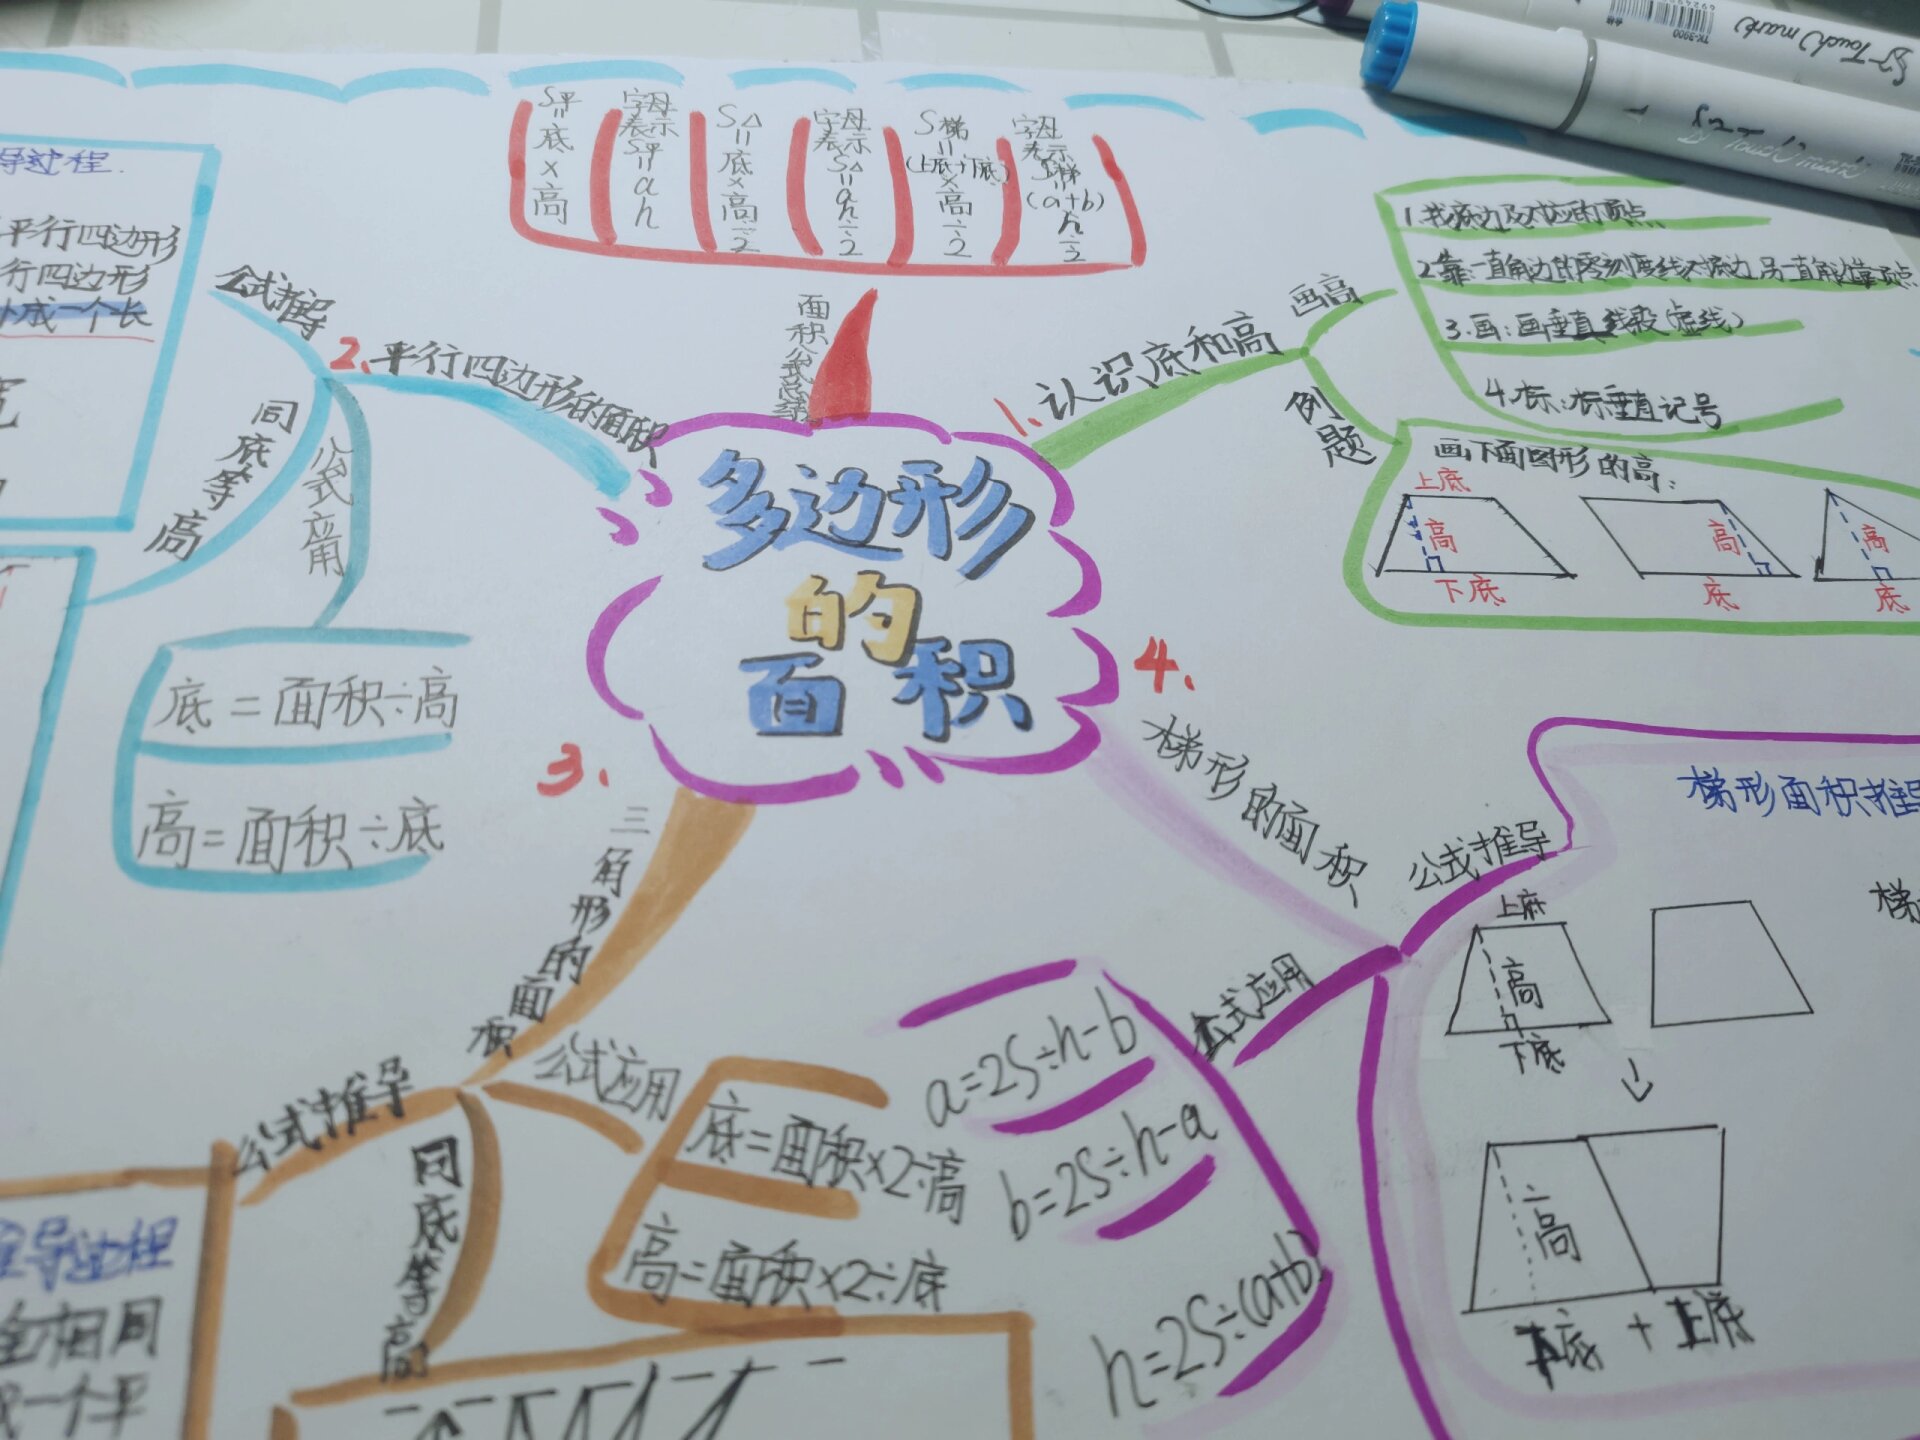 多边形
的
面积
面积公式总结
S平=底×高
字母表示S平=ah
S△=底×高÷2
字母表示S△=ah÷2
S梯=(上底+下底)×高÷2
字母表示S梯=(a+b)h÷2
1.认识底和高
画高
1.找底边及对应的顶点
2靠:一直角边的零刻度线对底边,另一直角边靠顶点
3.画:画垂直线段(虚线)
4.标:标垂直记号
例题
画下面图形的高:
上底
高
下底
高
底
高
底
2.平行四边形的面积
公式推导
导过程.
平行四边形
行四边形
成一个长
同底等高
公式应用
底=面积÷高
高=面积÷底
3.
三角形的面积
公式推导
导过程
全相同
一个平
同底等高
公式应用
底=面积×2÷高
高=面积×2÷底
4.
梯形的面积
公式推导
梯形面积推导
梯
上底
高
下底
高
下底+上底
公式应用
a=2S÷h-b
b=2S÷h-a
h=2S÷(a+b)
Touch mark
TK-3900
Touch mark